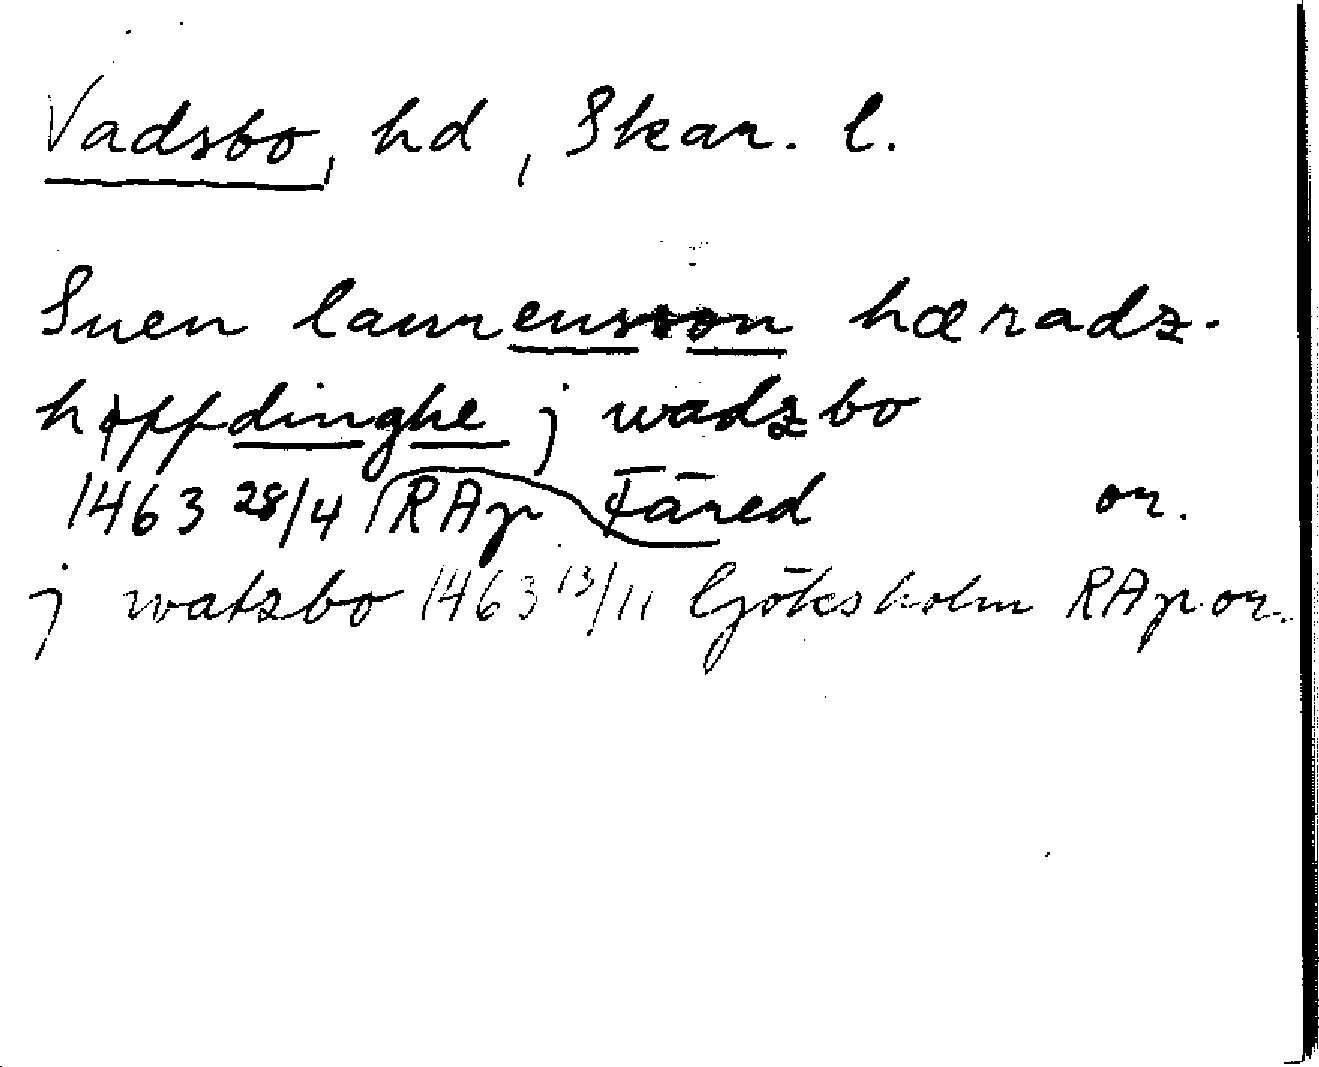 Vadsbo, hd, Skar. l.
Suen laurensson hæradz-
høffdinghe j wadzbo
1463 28/4 RAp Fåred or.
j watzbo 1463 13/11 Göksholm RAp or.